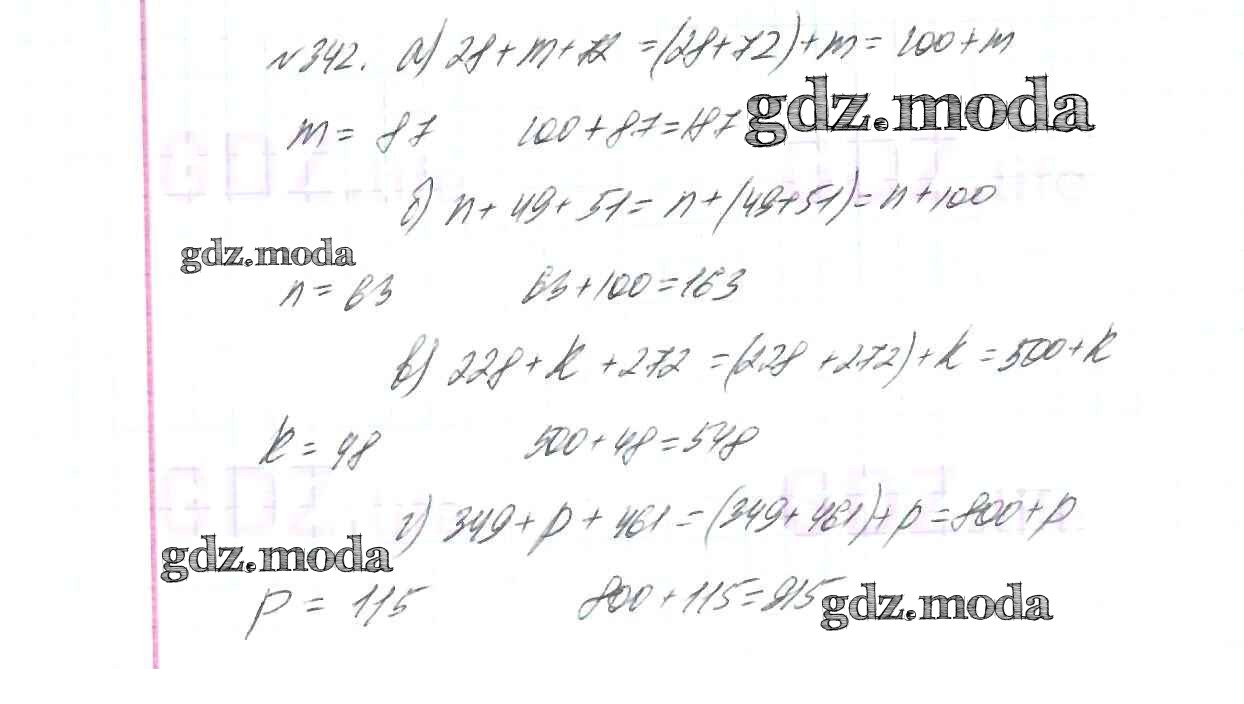 №342. а) 28+m+72 =(28+72)+m= 100+m
gdz.moda
m = 87 100+87=187
б) n+49+51= n+(49+51)= n+100
gdz.moda
n = 63 63+100=163
в) 228+k +272 =(228 +272)+k =500+k
k = 48 500+48=548
г) 349+p+461=(349+461)+p=800+p
gdz.moda
p = 115 800+115=915
gdz.moda